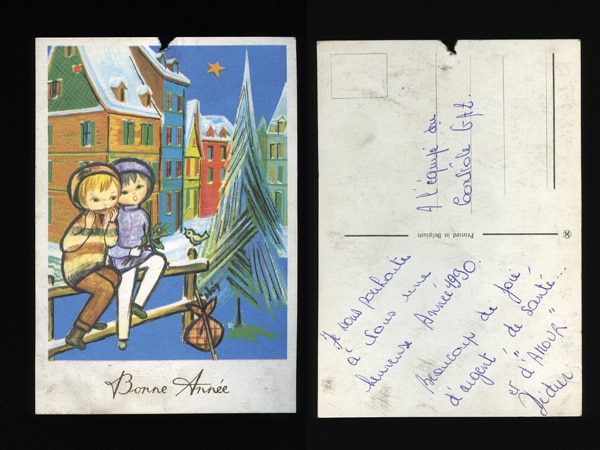 Bonne Année
A l'équipe du
Contrôle GPL.
Printed in Belgium
Je vous souhaite
à tous une
heureuse Année 1990.
Beaucoup de joie
d'argent, de santé...
et d'"AMOUR"
Didier